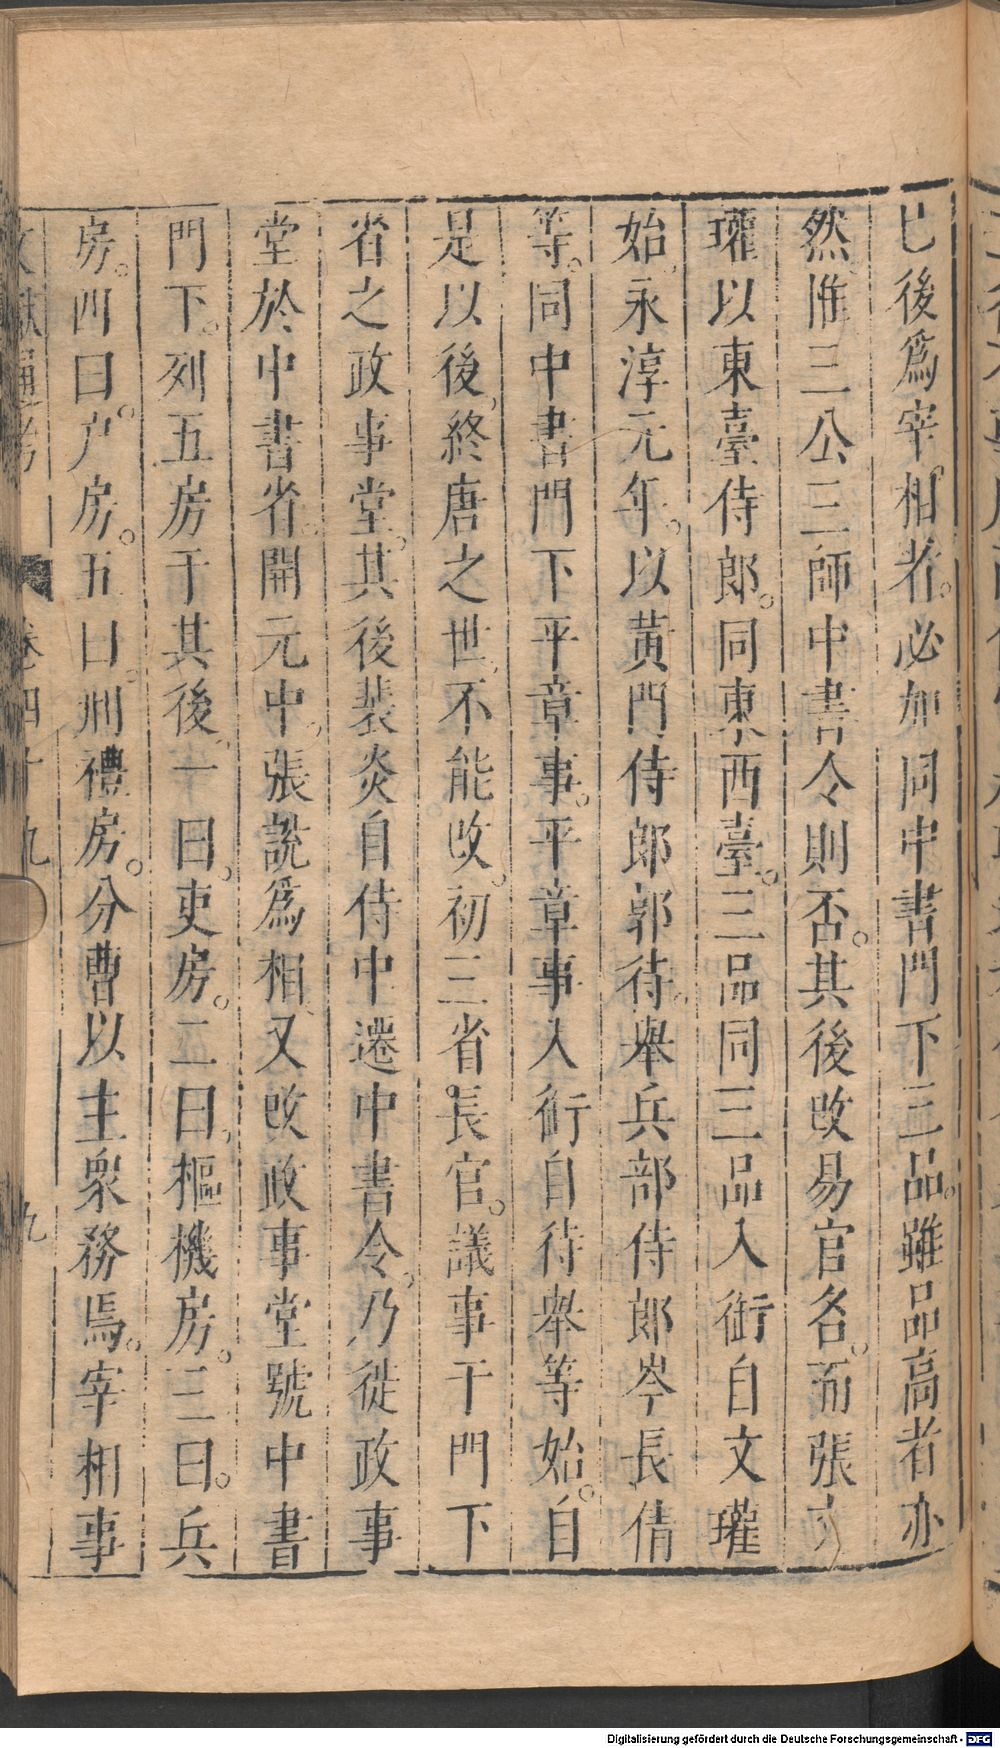 已後爲宰相者。必如同中書門下三品。雖品高者亦
然惟三公三師中書令則否。其後改易官名。而張文
瓘以東臺侍郎。同東西臺。三品同三品入銜自文瓘
始永淳元年。以黃門侍郎郭待。舉兵部侍郎岑長倩
等。同中書門下平章事。平章事入銜自待舉等始。自
是以後終唐之世不能改。初三省長官。議事于門下
省之政事堂。其後裴炎自侍中遷中書令。乃徙政事
堂於中書省。開元中。張說爲相又改政事堂號中書
門下。列五房于其後。一曰。吏房。二曰。樞機房。三曰。兵
房。四曰。户房。五曰。刑禮房。分曹以主衆務焉。宰相事
文獻通考 卷四十九 九
Digitalisierung gefördert durch die Deutsche Forschungsgemeinschaft - DFG